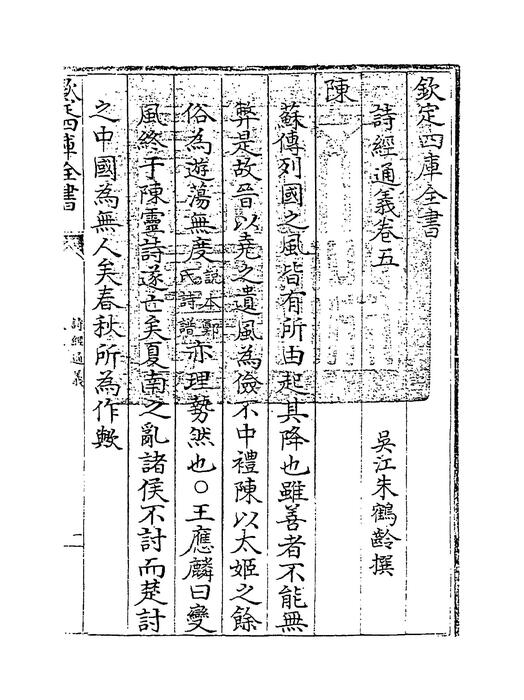 欽定四庫全書
詩經通義卷五
吳江朱鶴齡撰
陳
蘇傳列國之風皆有所由起其降也雖善者不能無
弊是故晉以堯之遺風為儉不中禮陳以太姬之餘
俗為遊蕩無度說本鄭氏詩譜亦理勢然也○王應麟曰變
風終于陳靈詩遂亡矣夏南之亂諸侯不討而楚討
之中國為無人矣春秋所為作歟
欽定四庫全書
詩經通義